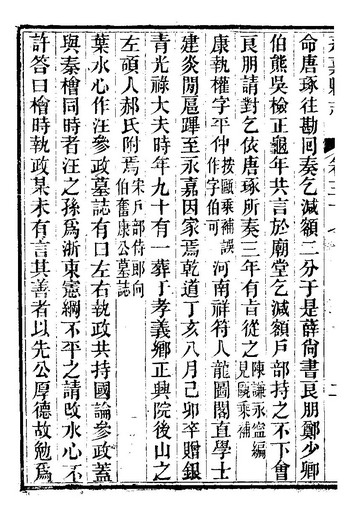 命唐琢往勘回奏乞減額二分于是薛尙書良朋鄭少卿
伯熊吳檢正龜年共言於廟堂乞減額戶部持之不下會
良朋請對乞依唐琢所奏三年有旨從之陳謙永寧編見甌乘補
康執權字平仲按甌乘補誤作字伯可河南祥符人龍圖閣直學士
建炎間扈蹕至永嘉因家焉乾道丁亥八月己卯卒贈銀
青光祿大夫時年九十有一葬于孝義鄉正興院後山之
左碩人郝氏附焉宋戶部侍郎向伯奮康公墓誌
葉水心作汪參政墓誌有曰左右執政共持國論參政蓋
與秦檜同時者汪之孫爲浙東憲綱不平之請改水心不
許答曰檜時執政某未有言其善者以先公厚德故勉爲